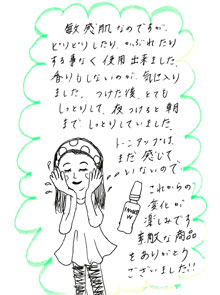 敏感肌なのですが、
ピリピリしたり、かぶれたり
する事なく使用出来ました。
香りもしないのが、気に入り
ました。つけた後、とても
しっとりして、夜つけると朝
までしっとりしていました。
トーンアップは、
まだ感じて
いないので
これからの
変化が
楽しみです
素敵な商品
をありがとう
ございました!!